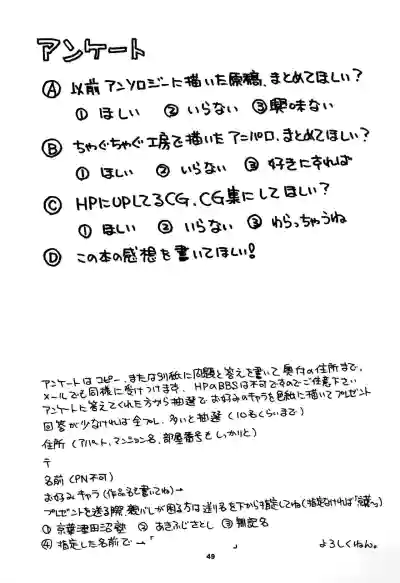 アンケート
Ⓐ 以前アンソロジーに描いた原稿、まとめてほしい？
① ほしい ② いらない ③ 興味ない
Ⓑ ちゃぐちゃぐ工房で描いたアニパロ、まとめてほしい？
① ほしい ② いらない ③ 好きにすれば
Ⓒ HPにUPしてるCG、CG集にしてほしい？
① ほしい ② いらない ③ わらっちゃうね
Ⓓ この本の感想を書いてほしい！
アンケートはコピー、または別紙に問題と答えを書いて奥付の住所まで。
メールでも同様に受けつけます。HPのBBSは不可ですのでご注意下さい
アンケートに答えてくれた方から抽選でお好みのキャラを色紙に描いてプレゼント
回答が少なければ全プレ、多いと抽選（10名くらいまで）
住所（アパート、マンション名、部屋番号もしっかりと）
〒
名前（PN不可）
お好みキャラ（作品名も書いてね）→
プレゼントを送る際、親バレが困る方は送り名を下から指定してね（指定なければ「
① 京葉津田沼塾 ② あきふじさとし ③ 無記名
④ 指定した名前で→「 」
よろしくねん。
49